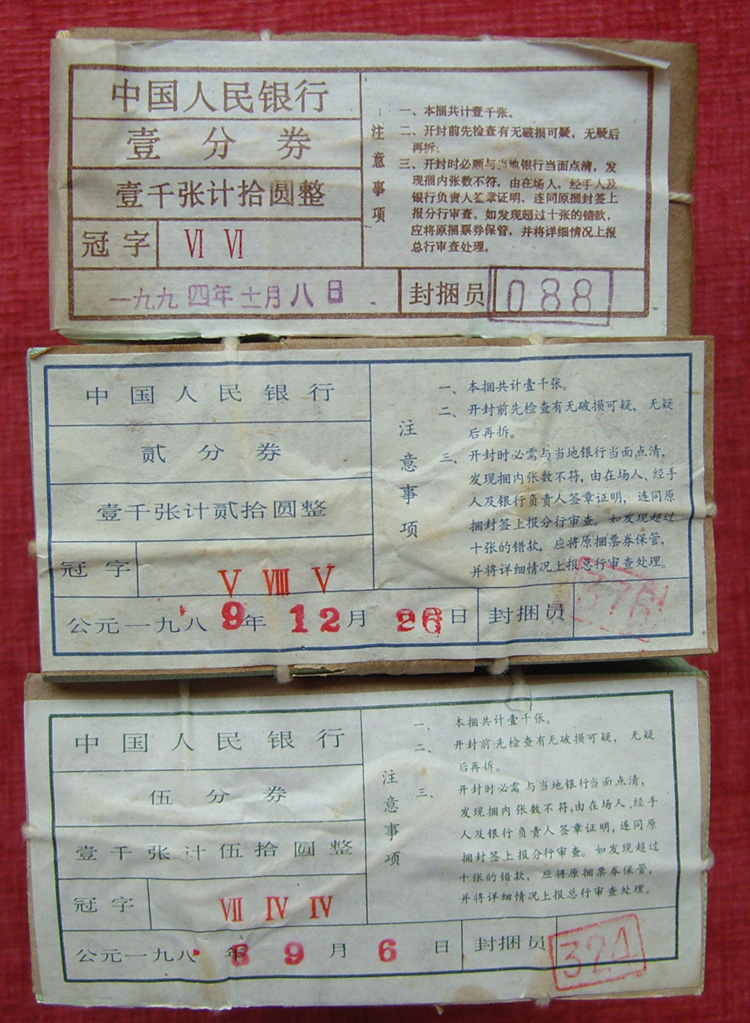 中国人民银行
壹分券
壹千张计拾圆整
冠字 Ⅵ Ⅵ
一九九四年十一月八日
注意事项
一、本捆共计壹千张。
二、开封前先检查有无破损可疑，无疑后
再拆。
三、开封时必须与当地银行当面点清，发
现捆内张数不符，由在场人，经手人及
银行负责人签章证明、连同原捆封签上
报分行审查。如发现超过十张的错款，
应将原捆票券保管，并将详细情况上报
总行审查处理。
封捆员 088
中国人民银行
贰分券
壹千张计贰拾圆整
冠字 Ⅴ Ⅷ Ⅴ
公元一九八9年12月26日
注意事项
一、本捆共计壹千张。
二、开封前先检查有无破损可疑，无疑
后再拆。
三、开封时必需与当地银行当面点清，
发现捆内张数不符，由在场人、经手
人及银行负责人签章证明，连同原
捆封签上报分行审查。如发现超过
十张的错款，应将原捆票券保管，
并将详细情况上报总行审查处理。
封捆员
中国人民银行
伍分券
壹千张计伍拾圆整
冠字 Ⅶ Ⅳ Ⅳ
公元一九八8年9月6日
注意事项
一、本捆共计壹千张。
二、开封前先检查有无破损可疑，无疑
后再拆。
三、开封时必需与当地银行当面点清，
发现捆内张数不符，由在场人、经手
人及银行负责人签章证明，连同原
捆封签上报分行审查。如发现超过
十张的错款，应将原捆票券保管，
并将详细情况上报总行审查处理。
封捆员 324